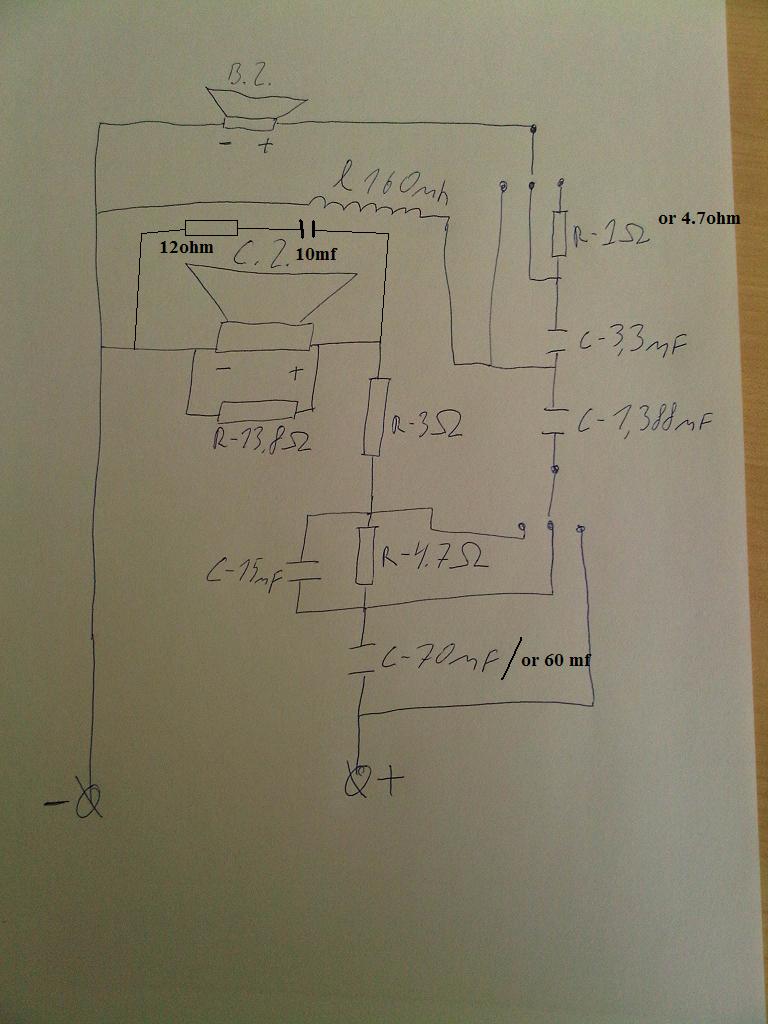 B.Z.
- +
l 160mh
12ohm
10mf
C.Z.
R-1Ω or 4.7ohm
C-3,3mF
- +
R-13,8Ω
R-3Ω
C-1,388mF
C-15mF
R-4.7Ω
C-70mF/or 60 mf
-
+